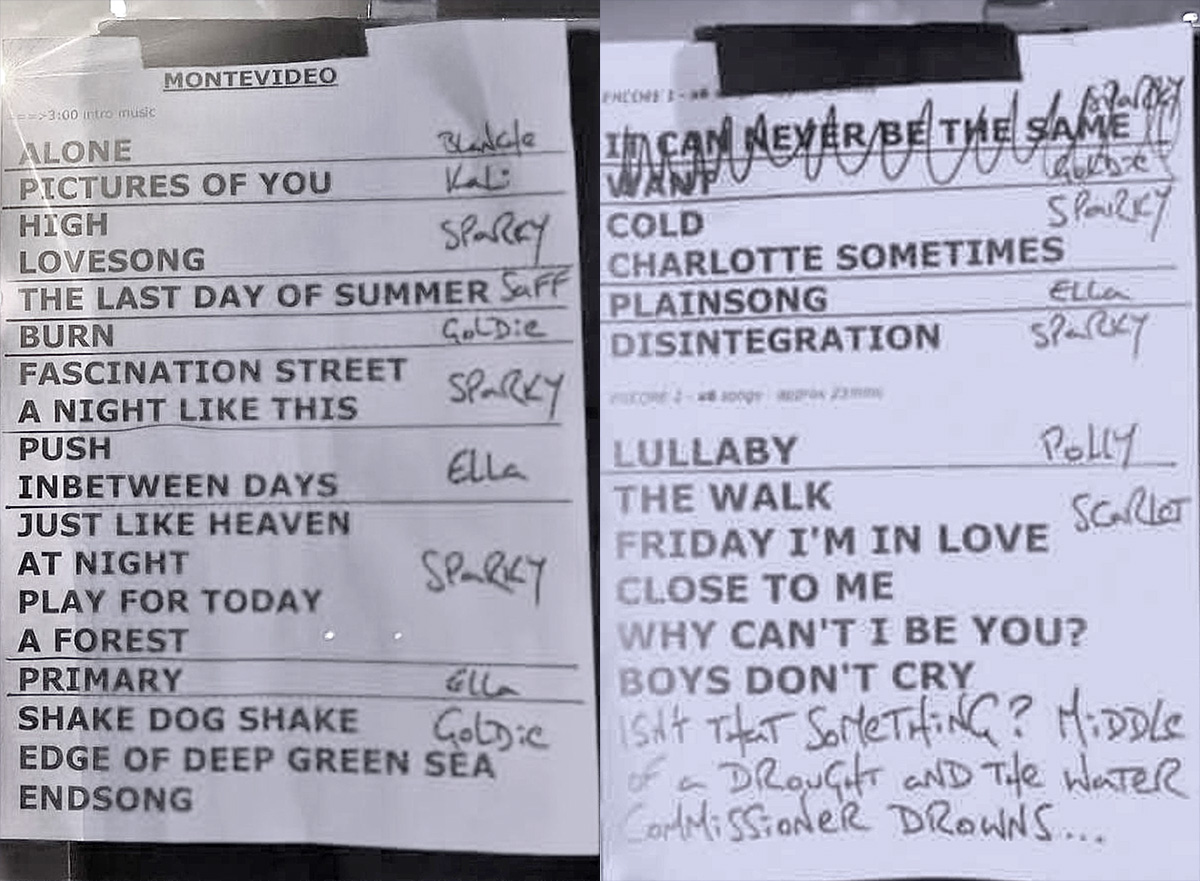 MONTEVIDEO
==>3:00 intro music
ALONE BLaNCHe
PICTURES OF YOU KaLi
HIGH
LOVESONG SPaRKY
THE LAST DAY OF SUMMER SaFF
BURN GoLDie
FASCINATION STREET
A NIGHT LIKE THIS SPaRKY
PUSH
INBETWEEN DAYS ELLa
JUST LIKE HEAVEN
AT NIGHT SPaRKY
PLAY FOR TODAY
A FOREST
PRIMARY ELLa
SHAKE DOG SHAKE GoLDie
EDGE OF DEEP GREEN SEA
ENDSONG
ENCORE 1 - x6
SPaRKY
IT CAN NEVER BE THE SAME
WANT GoLDie
COLD SPaRKY
CHARLOTTE SOMETIMES
PLAINSONG ELLa
DISINTEGRATION SPaRKY
ENCORE 2 - x6 songs - approx 23mins
LULLABY PoLLY
THE WALK SCaRLeT
FRIDAY I'M IN LOVE
CLOSE TO ME
WHY CAN'T I BE YOU?
BOYS DON'T CRY
ISN'T THaT SoMeTHiNG? MiDDLe
oF a DRouGHT aND THe WaTeR
CoMMiSSioNeR DRoWNS...